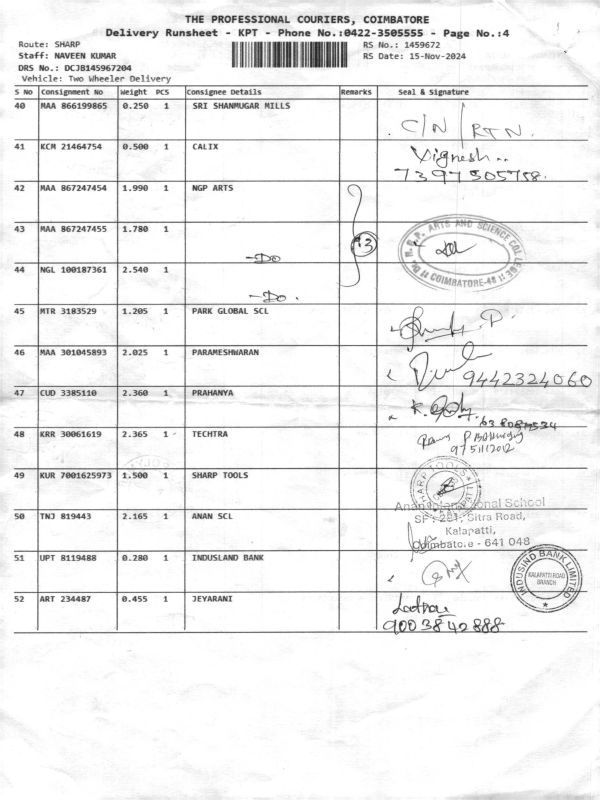 THE PROFESSIONAL COURIERS, COIMBATORE
Delivery Runsheet - KPT - Phone No.:0422-3505555 - Page No.:4
Route: SHARP
RS No.: 1459672
Staff: NAVEEN KUMAR
RS Date: 15-Nov-2024
DRS No.: DCJB145967204
Vehicle: Two Wheeler Delivery
S No Consignment No Weight PCS Consignee Details Remarks Seal & Signature
40 MAA 866199865 0.250 1 SRI SHANMUGAR MILLS
C/N / RTN.
41 KCM 21464754 0.500 1 CALIX
Vignesh..
7397505758.
42 MAA 867247454 1.990 1 NGP ARTS
43 MAA 867247455 1.780 1
-Do
N.G.P. ARTS AND SCIENCE COLLEGE
COIMBATORE-48
44 NGL 100187361 2.540 1
-Do.
45 MTR 3183529 1.205 1 PARK GLOBAL SCL
46 MAA 301045893 2.025 1 PARAMESHWARAN
9442324060
47 CUD 3385110 2.360 1 PRAHANYA
48 KRR 30061619 2.365 1 TECHTRA
49 KUR 7001625973 1.500 1 SHARP TOOLS
SHARP TOOLS
50 TNJ 819443 2.165 1 ANAN SCL
Anan International School
Sitra Road,
Kalapatti,
Coimbatore - 641 048
51 UPT 8119488 0.280 1 INDUSLAND BANK
INDUSIND BANK LIMITED
KALAPATTI ROAD
BRANCH
52 ART 234487 0.455 1 JEYARANI
9003842888